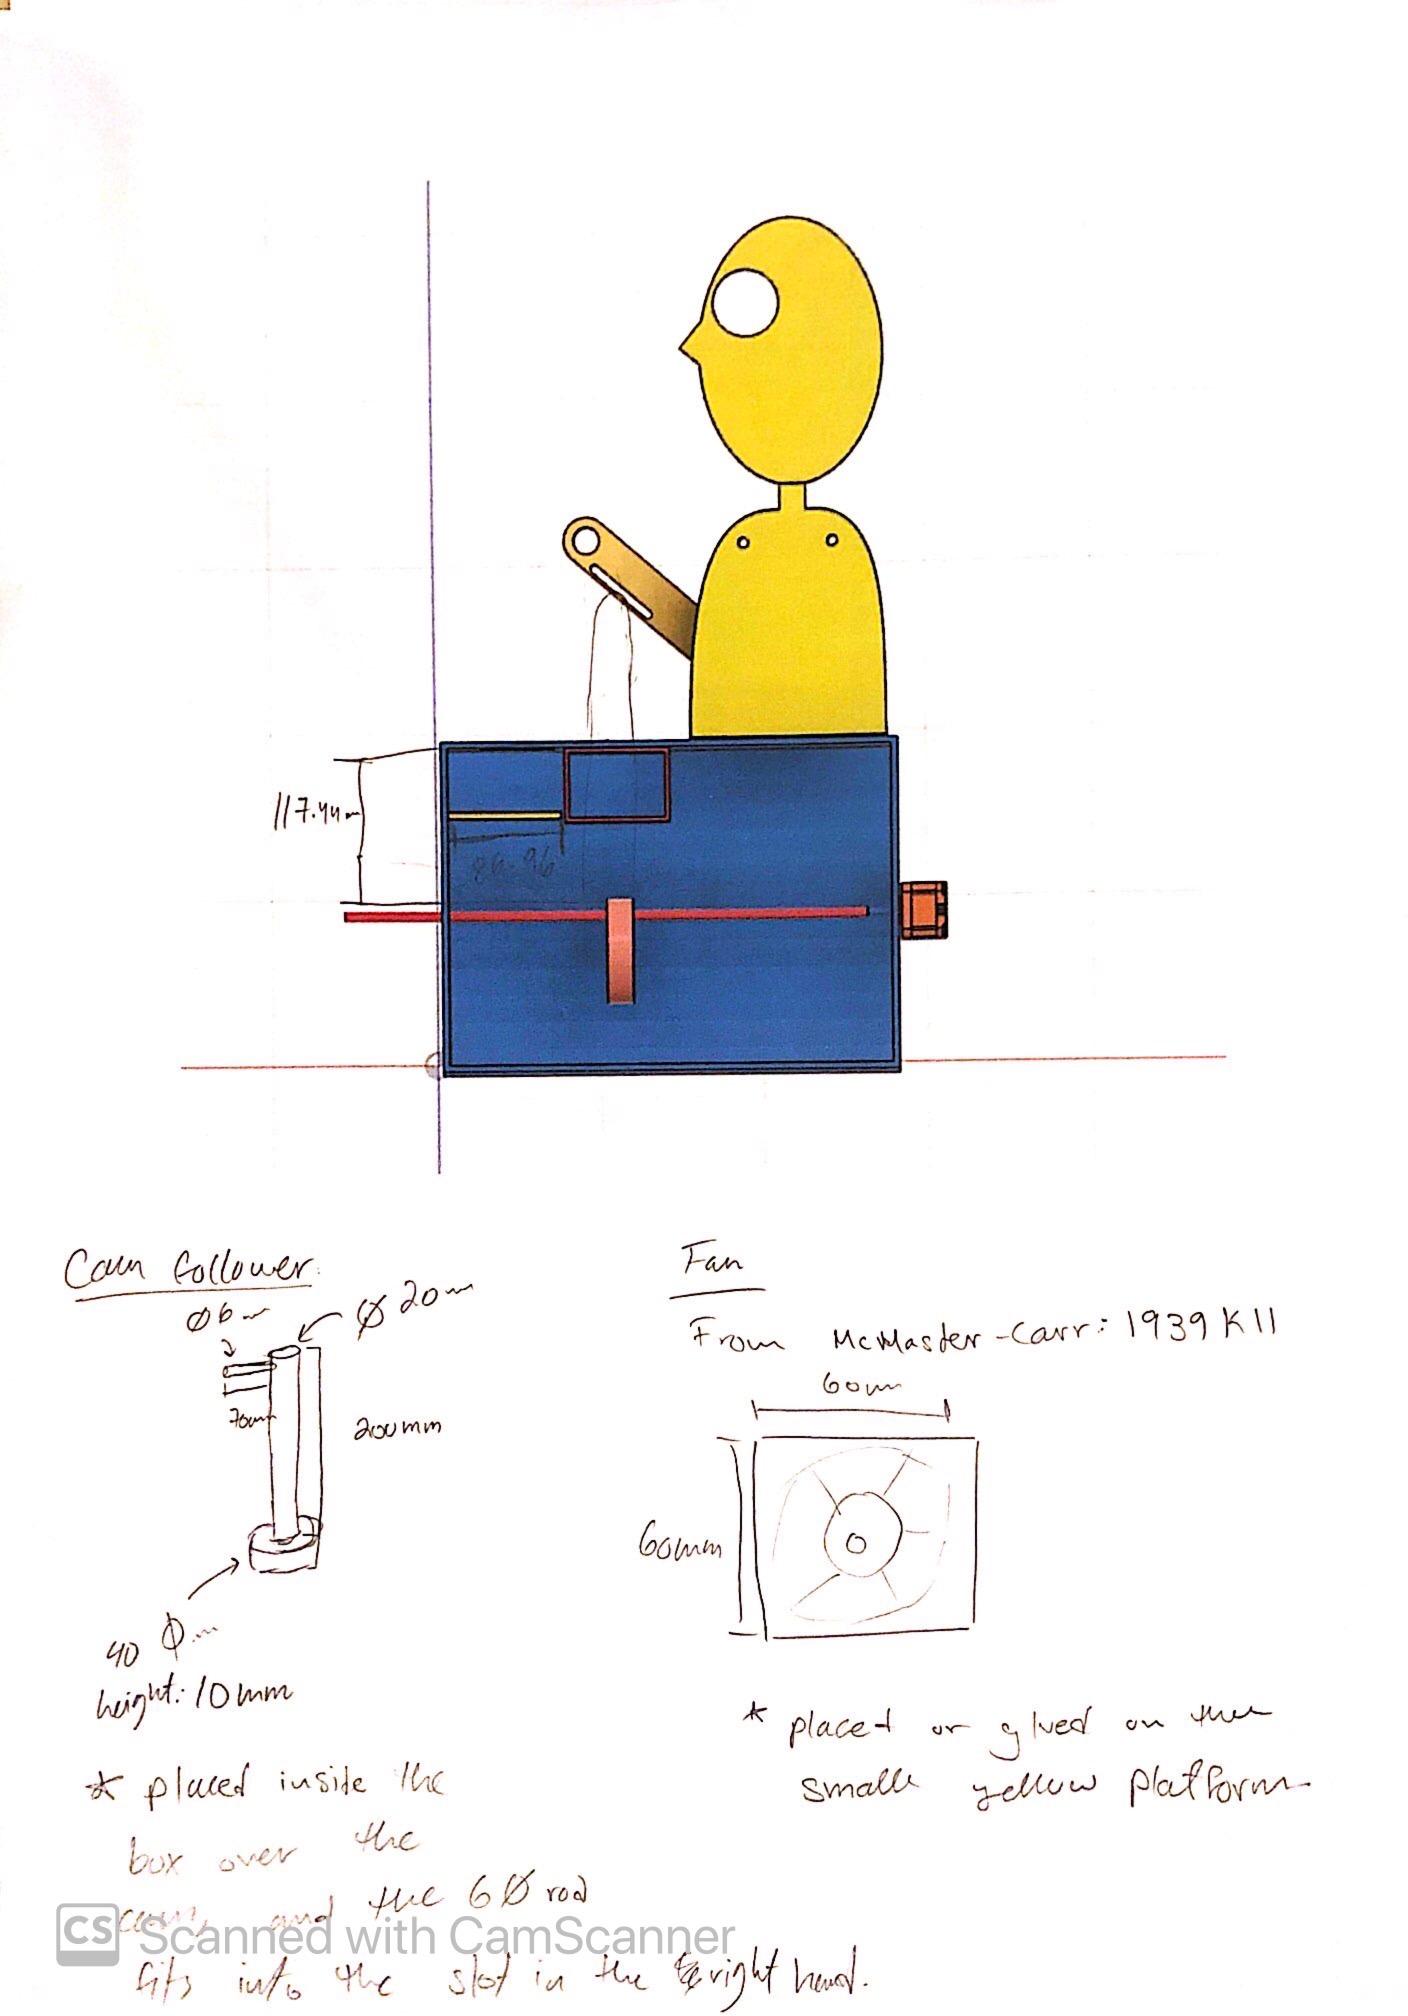 117.44m
86.96
Cam follower
Ø6m
Ø 20m
70mm
200mm
40 Ø m
height: 10mm
* placed inside the
box over the
cam, and the 6Ø rod
fits into the slot in the right hand.
Fan
From McMaster-Carr: 1939K11
60mm
60mm
* placed or glued on the
small yellow platform
CS Scanned with CamScanner